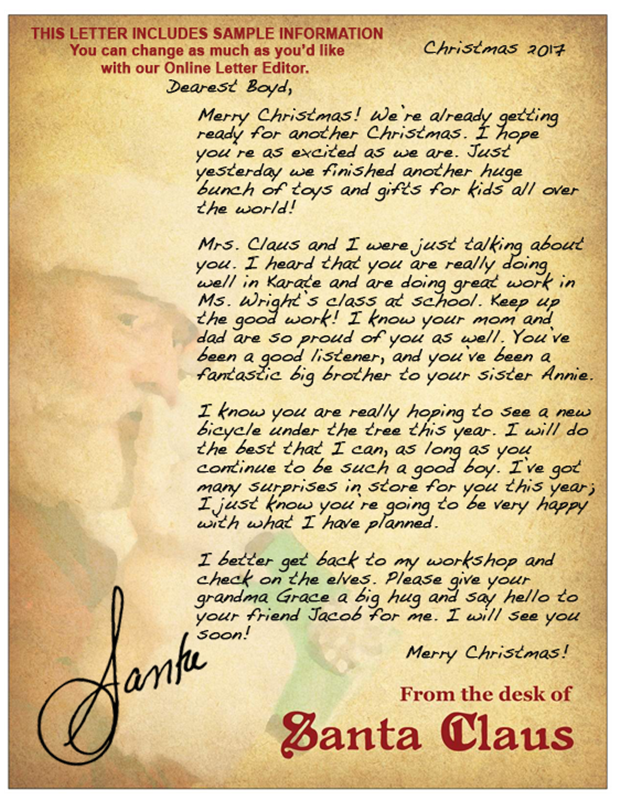 THIS LETTER INCLUDES SAMPLE INFORMATION
You can change as much as you'd like
with our Online Letter Editor.
Christmas 2017
Dearest Boyd,
Merry Christmas! We're already getting
ready for another Christmas. I hope
you're as excited as we are. Just
yesterday we finished another huge
bunch of toys and gifts for kids all over
the world!
Mrs. Claus and I were just talking about
you. I heard that you are really doing
well in Karate and are doing great work in
Ms. Wright's class at school. Keep up
the good work! I know your mom and
dad are so proud of you as well. You've
been a good listener, and you've been a
fantastic big brother to your sister Annie.
I know you are really hoping to see a new
bicycle under the tree this year. I will do
the best that I can, as long as you
continue to be such a good boy. I've got
many surprises in store for you this year;
I just know you're going to be very happy
with what I have planned.
I better get back to my workshop and
check on the elves. Please give your
grandma Grace a big hug and say hello to
your friend Jacob for me. I will see you
soon!
Merry Christmas!
Santa
From the desk of
Santa Claus